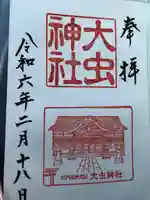 奉拝
大虫
神社
令和六年二月十八日
大虫神社